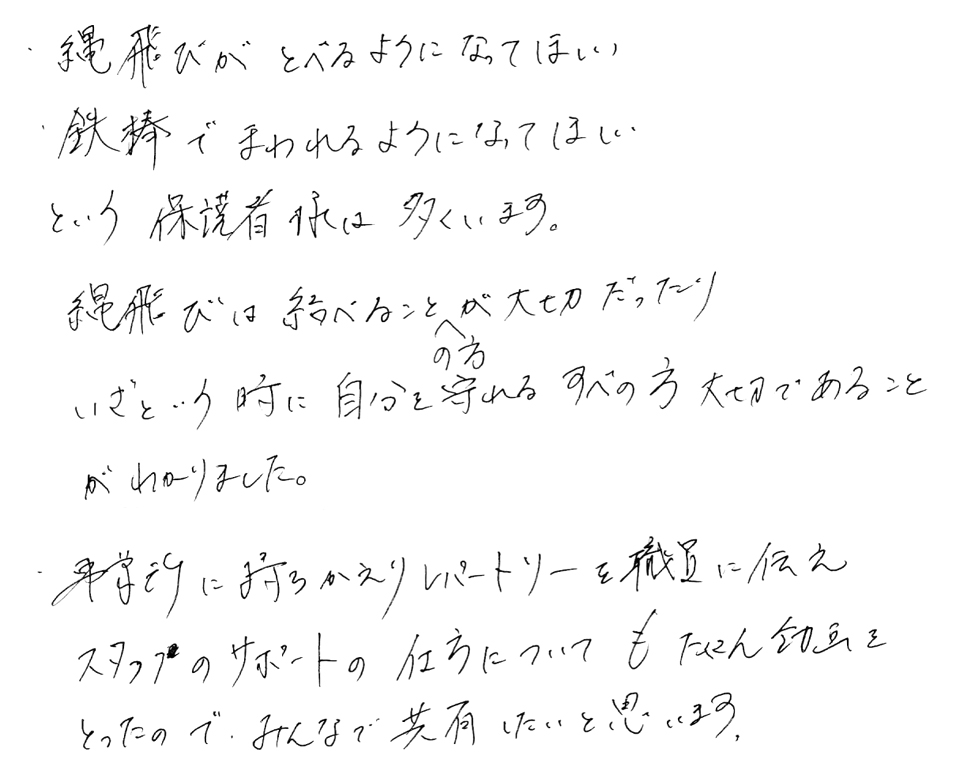 ・縄飛びがとべるようになってほしい
・鉄棒でまわれるようになってほしい
という保護者様は多くいます。
縄飛びは給べることが大切だったり
の方
いざという時に自分を守れるすべの方大切であること
がわかりました。
・事業所に持ちかえりレパートリーを職員に伝え
スタッフのサポートの仕方についてもたくさん動画を
とったので、みんなで共有したいと思います。